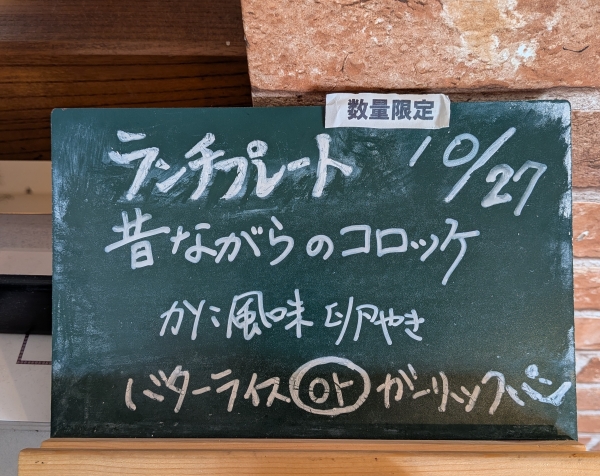 数量限定
ランチプレート 10/27
昔ながらのコロッケ
かに風味 卵やき
バターライス or ガーリックパン